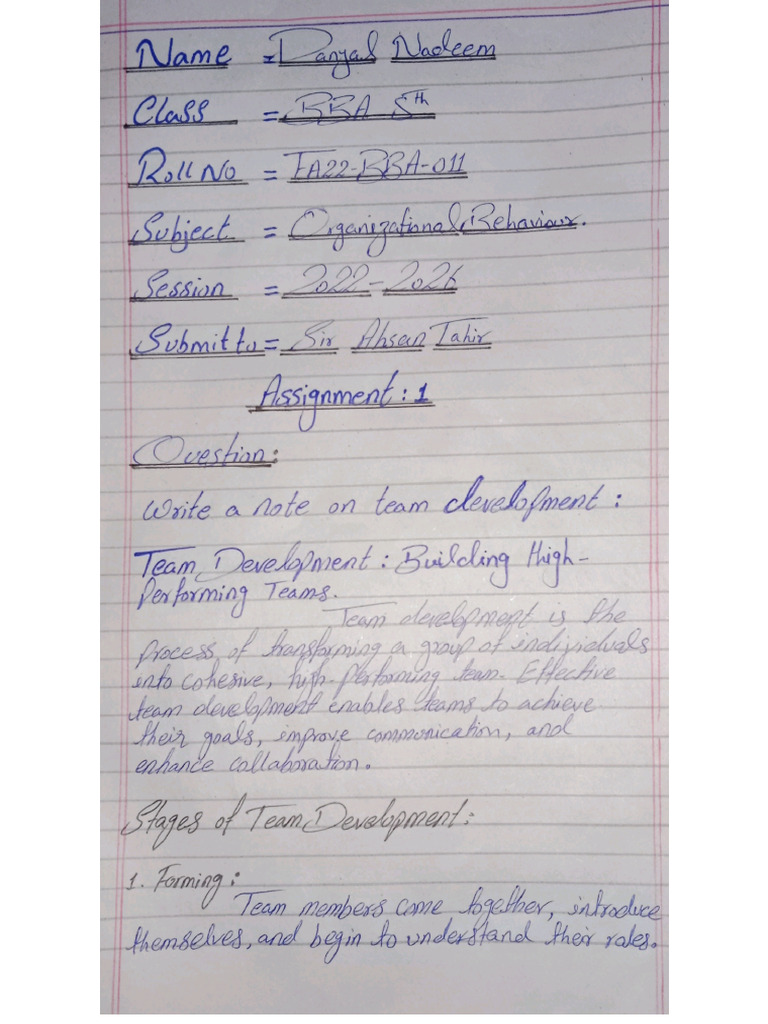 Name = Danyal Nadeem
Class = BBA 5th
Roll No = FA22-BBA-011
Subject = Organizational Behaviour.
Session = 2022-2026
Submit to = Sir Ahsan Tahir
Assignment : 1
Question:
Write a note on team development :
Team Development : Building High-
Performing Teams.
Team development is the
process of transforming a group of individuals
into cohesive, high-performing team. Effective
team development enables teams to achieve
their goals, improve communication, and
enhance collaboration.
Stages of Team Development:
1. Forming:
Team members come together, introduce
themselves, and begin to understand their roles.